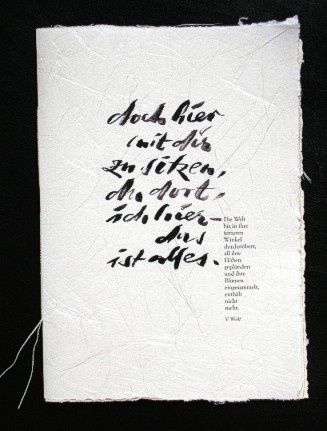 doch hier
mit dir
zu sitzen,
du dort,
ich hier –
das
ist alles.
Die Welt
bis in ihre
fernsten
Winkel
durchstöbert,
all ihre
Höhen
geplündert
und ihre
Blumen
eingesammelt,
enthält
nicht
mehr.
V. Wolf